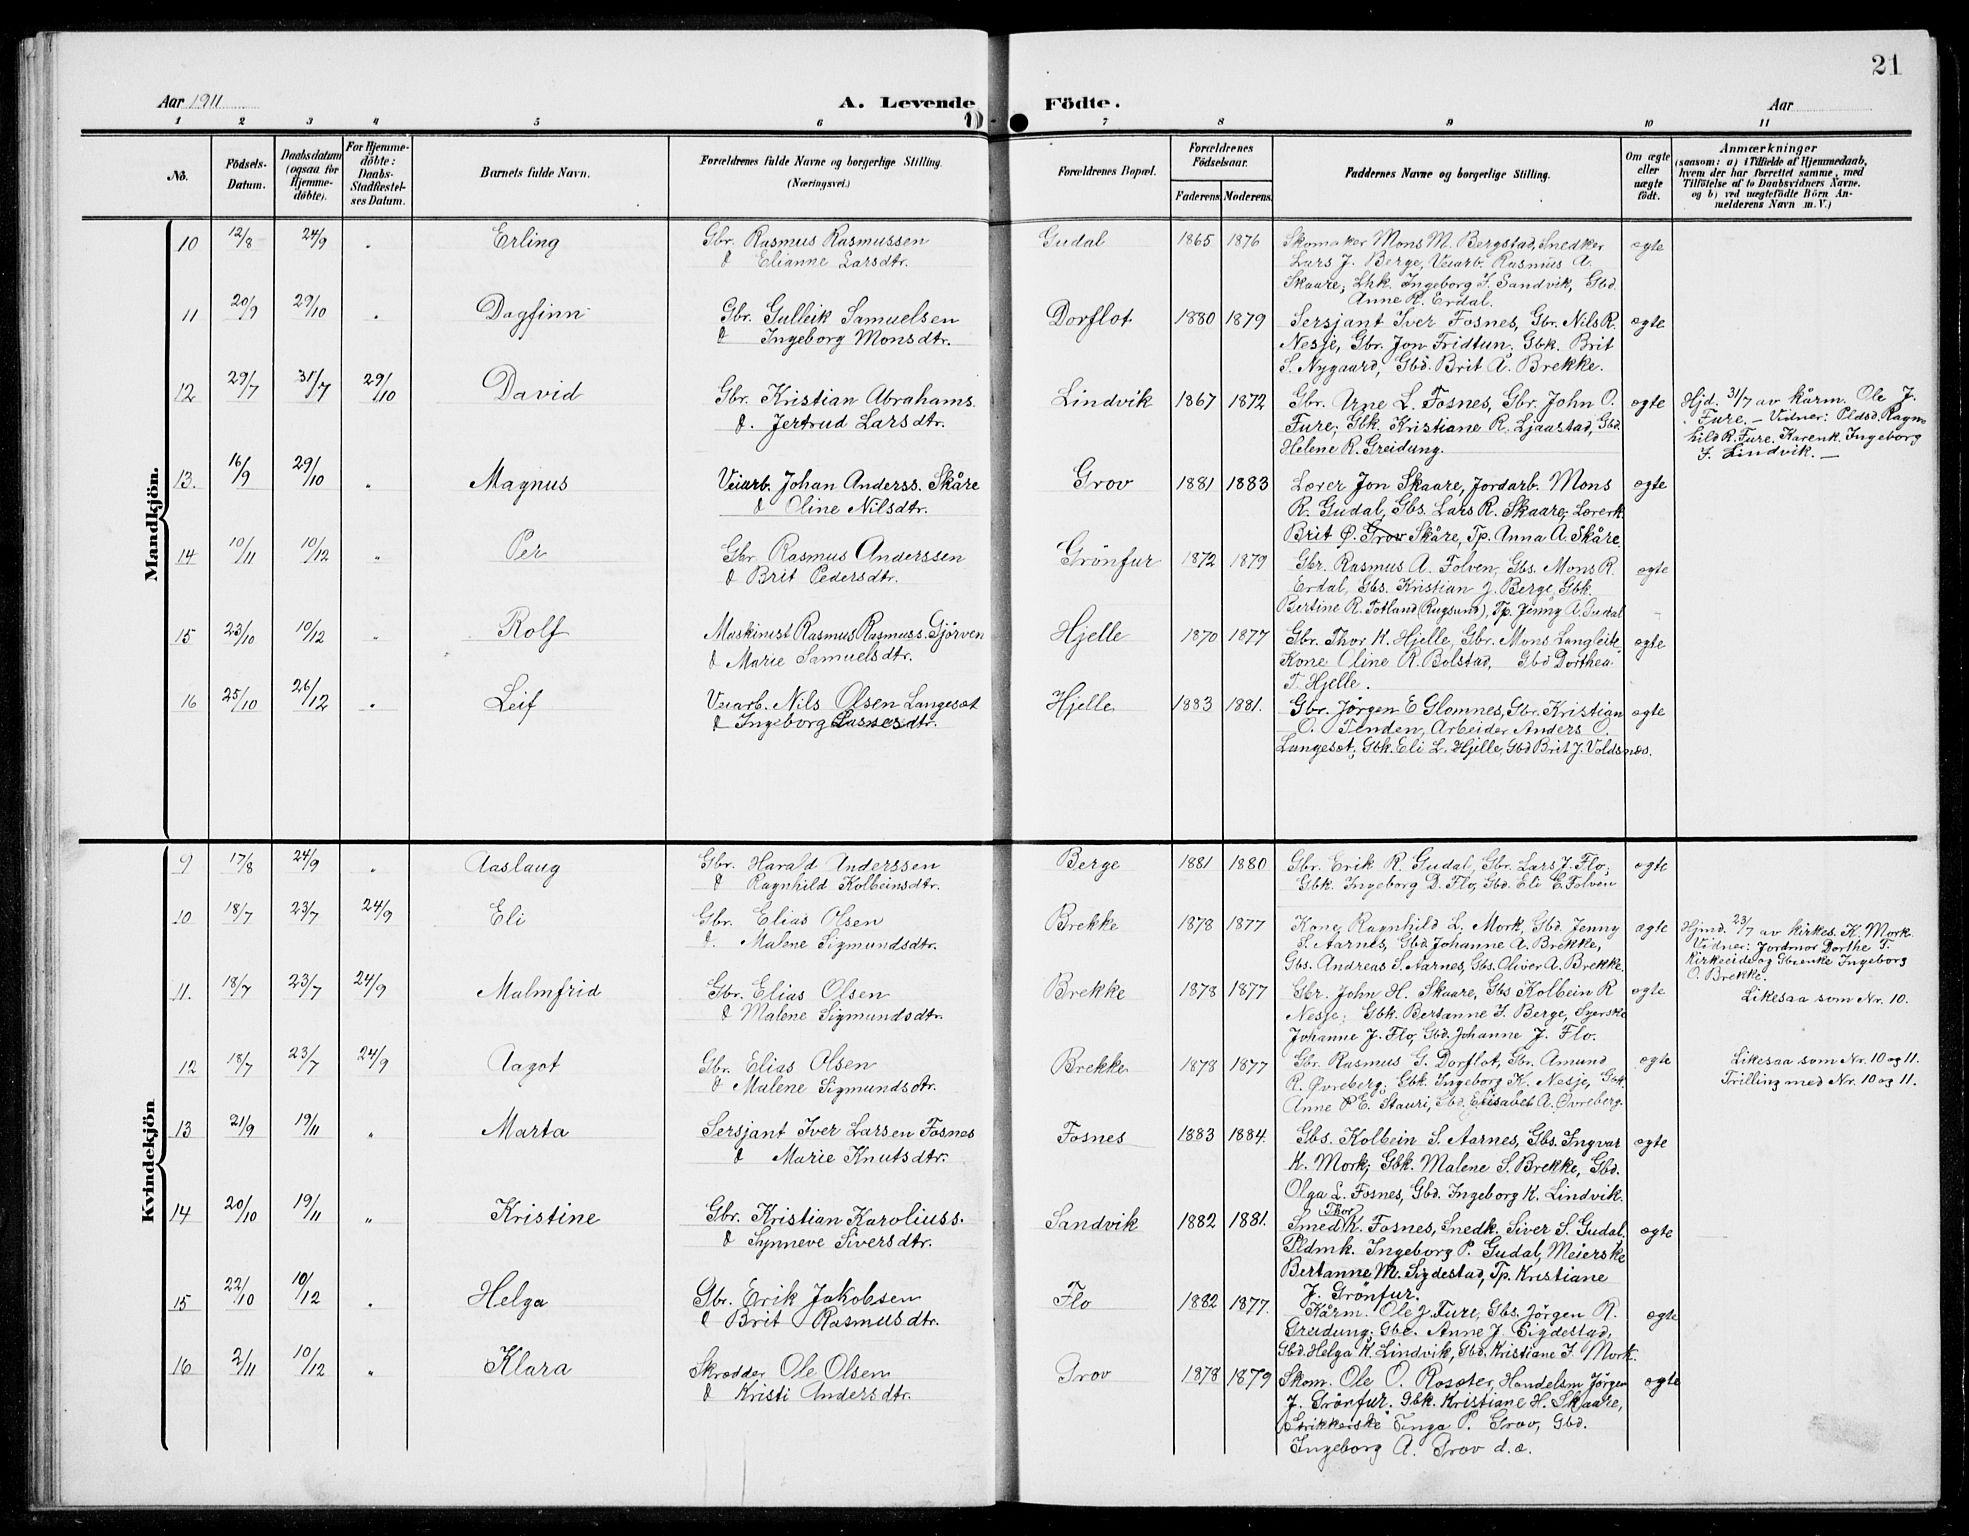 21
Aar 1911 A. Levende Födte. Aar
1 2 3 4 5 6 7 8 9 10 11
No. Födsels-Datum. Daabsdatum (ogsaa for Hjemme-döbte). For Hjemme-döbte: Daabs-Stadfæstel-ses Datum. Barnets fulde Navn. Forældrenes fulde Navne og borgerlige Stilling. (Næringsvei.) Forældrenes Bopæl. Forældrenes Födselsaar. Faderens Moderens Faddernes Navne og borgerlige Stilling. Om ægte eller uægte födt. Anmærkninger (saasom: a) i Tilfælde af Hjemmedaab, hvem der har forrettet samme, med Tilföielse af to Daabsvidners Navne, og b) ved uægtefödte Börn An-melderens Navn m. V.)
Mandkjön.
10 12/8 24/9 " Erling Gbr. Rasmus Rasmussen Gudal 1865 1876 Skomaker Mons M. Bergstad, Snedker ægte
& Elianne Larsdtr. Lars J. Berge, Veiarb. Rasmus A.
Skaare; Lhk. Ingeborg J. Sandvik, Gbd.
Anne R. Erdal.
11 20/9 29/10 " Dagfinn Gbr. Gulleik Samuelsen Dorflot 1880 1879 Sersjant Iver Fosnes, Gbr. Nils R. ægte
& Ingeborg Monsdtr. Nesje, Gbr. Jon Fridtun. Gbk. Brit
S. Nygaard, Gbd. Brit A. Brekke.
12 29/7 31/7 29/10 David Gbr. Kristian Abrahams. Lindvik 1867 1872 Gbr. Arne L. Fosnes, Gbr. John O. ægte Hjd. 31/7 av kårm. Ole J.
& Jertrud Larsdtr. Fure; Gbk. Kristiane R. Ljaastad, Gbd. Fure. – Vidner: Pldsd. Ragn-
Helene R. Greidung. hild R. Fure. Karenk. Ingeborg
J. Lindvik. –
13. 16/9 29/10 " Magnus Veiarb. Johan Anderss. Skåre Grov 1881 1883 Lærer Jon Skaare, Jordarb. Mons ægte
& Oline Nilsdtr. R. Gudal, Gbs. Lars R. Skaare; Lærerk.
Brit Ø. Grov Skåre, Tp. Anna A. Skåre.
14 10/11 10/12 " Per Gbr. Rasmus Anderssen Grönfur 1872 1879 Gbr. Rasmus A. Folven, Gbs. Mons R. ægte
& Brit Pedersdtr. Erdal, Gbs. Kristian J. Berge, Gbk.
Bertine R. Totland (Rugsund), Tp. Jenny A. Gudal
15 23/10 10/12 " Rolf Maskinist Rasmus Rasmuss. Gjörven Hjelle 1870 1877 Gbr. Thor K. Hjelle, Gbr. Mons Langleite, ægte
& Marie Samuelsdtr. Kone Oline R. Bolstad, Gbd Dorthea
T. Hjelle.
16 25/10 26/12 " Leif Veiarb. Nils Olsen Langesæt Hjelle 1883 1881. Gbr. Jörgen E Glomnes, Gbr. Kristian ægte
& Ingeborg Lassesdtr. O. Tenden, Arbeider Anders O.
Langesæt; Gbk. Eli L. Hjelle, Gbd Brit J. Voldsnes.
Kvindekjön
9 17/8 24/9 " Aaslaug Gbr. Harald Anderssen Berge 1881 1880 Gbr. Erik R. Gudal, Gbr. Lars J. Flo; ægte
& Ragnhild Kolbeinsdtr. Gbk. Ingeborg D. Flo, Gbd. Eli E. Folven
10 18/7 23/7 24/9 Eli Gbr. Elias Olsen Brekke 1878 1877 Kone Ragnhild L. Mork, Gbd. Jenny ægte Hjmd. 23/7 av kirkes. K. Mork.
& Malene Sigmundsdtr. S. Aarnes, Gbd Johanne A. Brekke, Vidner: Jordmor Dorthe T.
Gbs. Andreas S. Aarnes, Gbs. Oliver A. Brekke. Kirkeeide og Gbrenke Ingeborg
O. Brekke.
11. 18/7 23/7 24/9 Malmfrid Gbr. Elias Olsen Brekke 1878 1877 Gbr. John H. Skaare, Gbs Kolbein R ægte Likesaa som Nr. 10.
& Malene Sigmundsdtr. Nesje; Gbk. Bertanne J. Berge, Syerske
Johanne J. Flo, Gbd. Johanne J. Flo.
12 18/7 23/7 24/9 Aagot Gbr. Elias Olsen Brekke 1878 1877 Gbr. Rasmus G. Dorflot, Gbr. Amund ægte Likesaa som Nr. 10 og 11.
& Malene Sigmundsdtr. R. Øvreberg; Gbk. Ingeborg K. Nesje, Gbk Trilling med Nr. 10 og 11.
Anne P E. Stauri, Gbd. Elisabet A. Øvreberg.
13 21/9 19/11 " Marta Sersjant Iver Larsen Fosnes Fosnes 1883 1884. Gbs. Kolbein S. Aarnes, Gbs. Ingvar ægte
& Marie Knutsdtr. K. Mork; Gbk. Malene S. Brekke, Gbd.
Olga L. Fosnes, Gbd. Ingeborg K. Lindvik.
14 20/10 19/11 " Kristine Gbr. Kristian Karoliuss. Sandvik 1882 1881. Smed Thor K. Fosnes, Snedk. Siver S. Gudal. ægte
& Synneve Siversdtr. Pldmk. Ingeborg P. Gudal, Meierske
Bertanne M. Sigdestad, Tp. Kristiane
J. Grönfur.
15 22/10 10/12 " Helga Gbr. Erik Jakobsen Flo 1882 1877. Kårm. Ole J. Fure, Gbs. Jörgen R. ægte
& Brit Rasmusdtr. Greidung; Gbe. Anne J. Sigdestad,
Gbd. Helga K. Lindvik, Gbd. Kristiane J. Mork.
16 2/11 10/12 " Klara Skrædder Ole Olsen Grov 1878 1879 Skom. Ole O. Rosæter, Handelsm Jörgen ægte
& Kristi Andersdtr. J. Grönfur. Gbk. Kristiane H. Skaare,
Strikkerske Inga P. Grov, Gbd.
Ingeborg A. Grov d.æ.